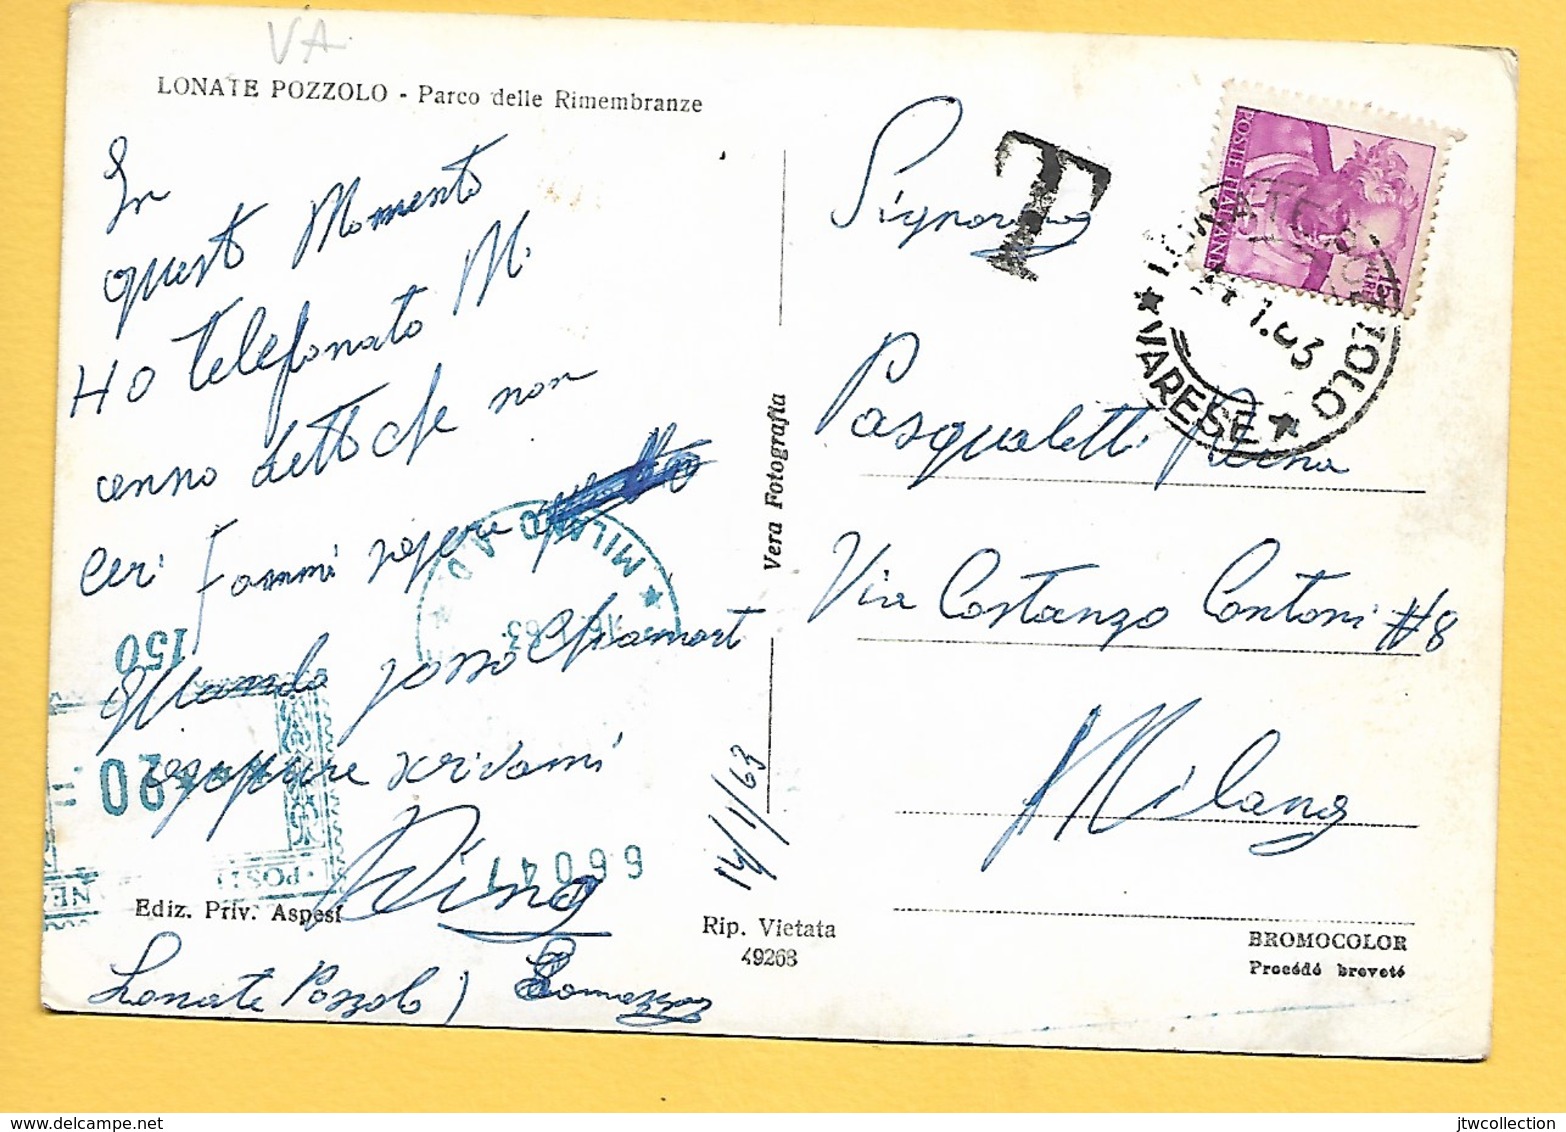 VA
LONATE POZZOLO - Parco delle Rimembranze
In
questo Momento
Ho Telefonato M.
anno detto che non
ceri Fammi sapere
Quando posso Chiamarti
oppure scrivami
Dina
Lonate Pozzolo)
14/1/63
Signorina
Pasqualetti Pierina
Via Costanzo Cantoni #8
Milano
T
POSTE ITALIANE
LIRE 15
LONATE POZZOLO
14.1.63
★ VARESE ★
★ MILANO A.D. ★
63
150
★ ★ 20
66041
POST
NE
Ediz. Priv. Aspesi
Vera Fotografia
Rip. Vietata
49268
BROMOCOLOR
Procédé breveté
jtwcollection